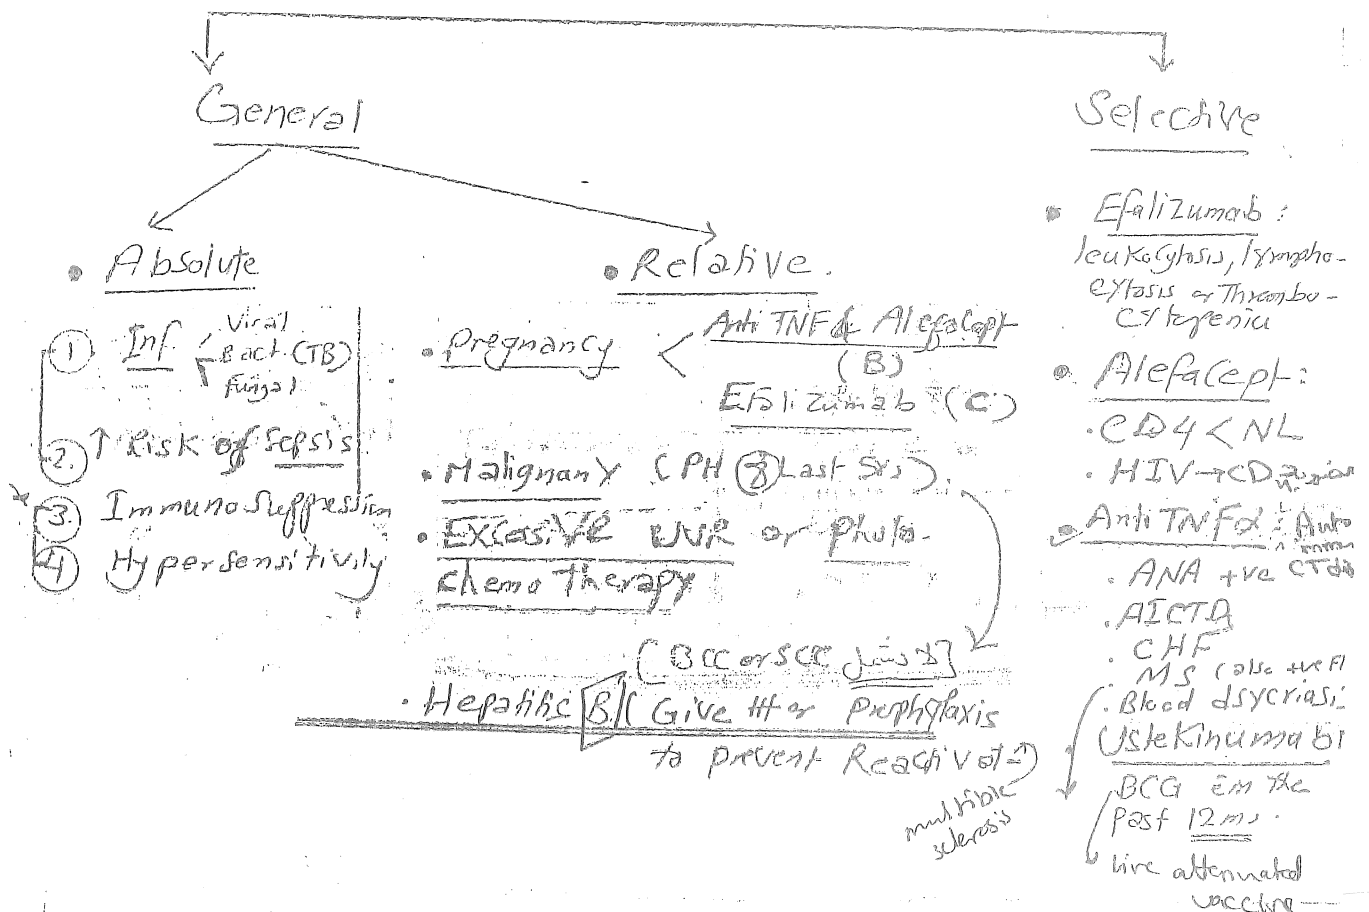 General
Selective
• Absolute
① Inf
Viral
Bact. (TB)
Fungal
2. ↑ Risk of Sepsis.
3. Immunosuppression
4 Hypersensitivity
• Relative.
• Pregnancy <
Anti TNF & Alefacept
(B)
Efalizumab (C)
• Malignany (PH Last 5yrs).
• Excessive UVR or photo-
chemo Therapy
[BCC or SCC
• Hepatitis B ( Give or prophylaxis
to prevent Reactivat
multible
sclerosis
• Efalizumab :
leukocytosis, lympho-
cytosis or Thrombo-
cytopenia
• Alefacept:
• CD4 < NL
• HIV → CD
• Anti TNFα : Auto
• ANA +ve
• AICTD
• CHF
• MS ( also +ve
• Blood dsycriasi:
Ustekinumab:
BCG in the
past 12ms.
live attenuated
vaccine